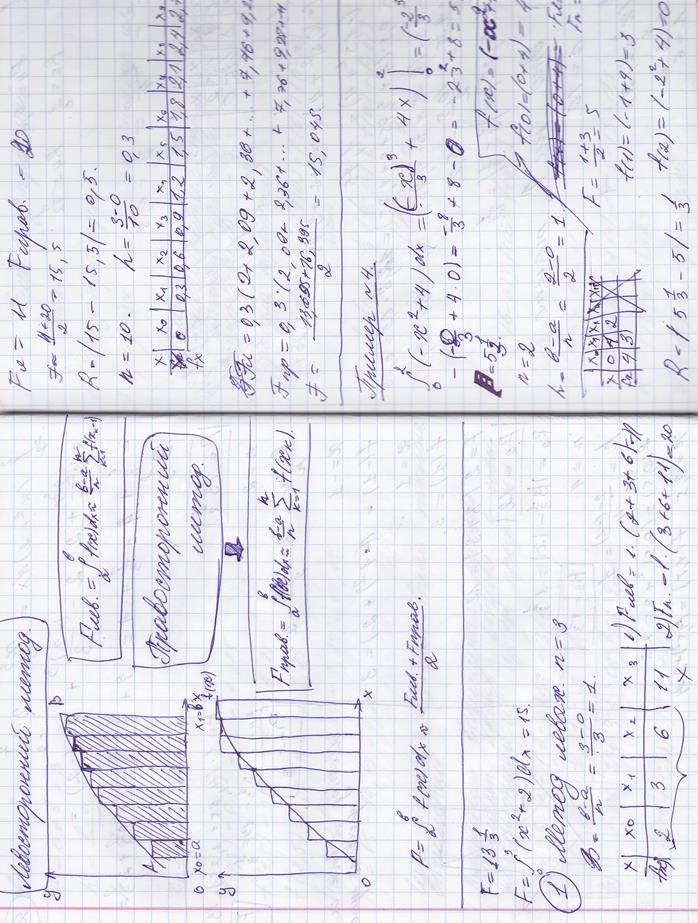 Левосторонний метод
y
A
B
0 x₀=a
x₁=b x
Fлев. = ∫ₐᵇ f(x)dx ≈ (b-a)/n Σ f(xₖ₋₁)
Правосторонний
метод.
y
f(x)
0
x
Fправ. = ∫ₐᵇ f(x)dx ≈ (b-a)/n Σₖ₌₁ⁿ f(xₖ).
P = ∫ₐᵇ f(x)dx ≈ (Fлев. + Fправ.)/2
F = 13 1/3
F = ∫₀³ (x²+2)dx = 15.
① Метод левох. n = 3
= (b-a)/n = (3-0)/3 = 1.
x | x0 | x1 | x2 | x3
2 | 3 | 6 | 11
x
1) Fлев = 1·(2+3+6)=11
2) Fп. = 1·(3+6+11)=20
Fл = 11 Fправ. = 20
F = (11+20)/2 = 15,5
R = |15 - 15,5| = 0,5.
n = 10. h = (3-0)/10 = 0,3
x | x₀ | x₁ | x₂ | x₃ | x₄ | x₅ | x₆
0 | 0,3 | 0,6 | 0,9 | 1,2 | 1,5 | 1,8 | 2,1 | 2,4 | 2,7
fx
Fл = 0,3(2+2,09+2,36+...+7,76+9,2
Fпр = 0,3·(2,09+2,36+...+7,76+9,29+11
F = (13,695+16,395)/2 = 15,045
Пример №4.
∫₀² (-x²+4)dx = (-x³/3 + 4x)|₀² = (-2³/3
-(-0/3 + 4·0) = -8/3 + 8 - 0 = -2 2/3 + 8 = 5
= 5 1/3
n = 2
h = (b-a)/n = (2-0)/2 = 1.
f(x) = (-x²
f(0) = (0+4) = 4
x | 0 | 1 | 2
4 | 3
F = (1+3)/2 = 5
f(1) = (-1+4) = 3
f(2) = (-2²+4) = 0
R = |5 1/3 - 5| = 1/3